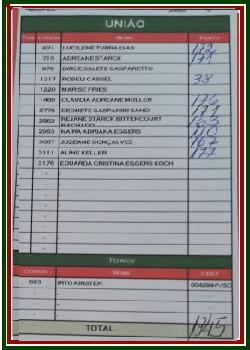 UNIÃO
POS CÓDIGO NOME PONTO
671 LUCILENE TURRA DIAS 172
710 ADRIANE STARCK 177
976 DIRCE SALETE GASPARETTO
1317 ROSELI CASSEL 38
1220 MARISE FRIES
CLAUDIA ADRIANE MÜLLER 176
2776 GEONETE GASPARINI SANDI 177
2962 REJANE STARCK BITTENCOURT MACHADO 163
2963 NAIRA ADRIANA EGGERS 110
3087 JOZEANE GONÇALVES 167
3111 ALINE KELLER 177
3176 EDUARDA CRISTINA EGGERS KOCH
TÉCNICO
CÓDIGO NOME CREF
693 IRTO KIRSTEN
TOTAL 1345